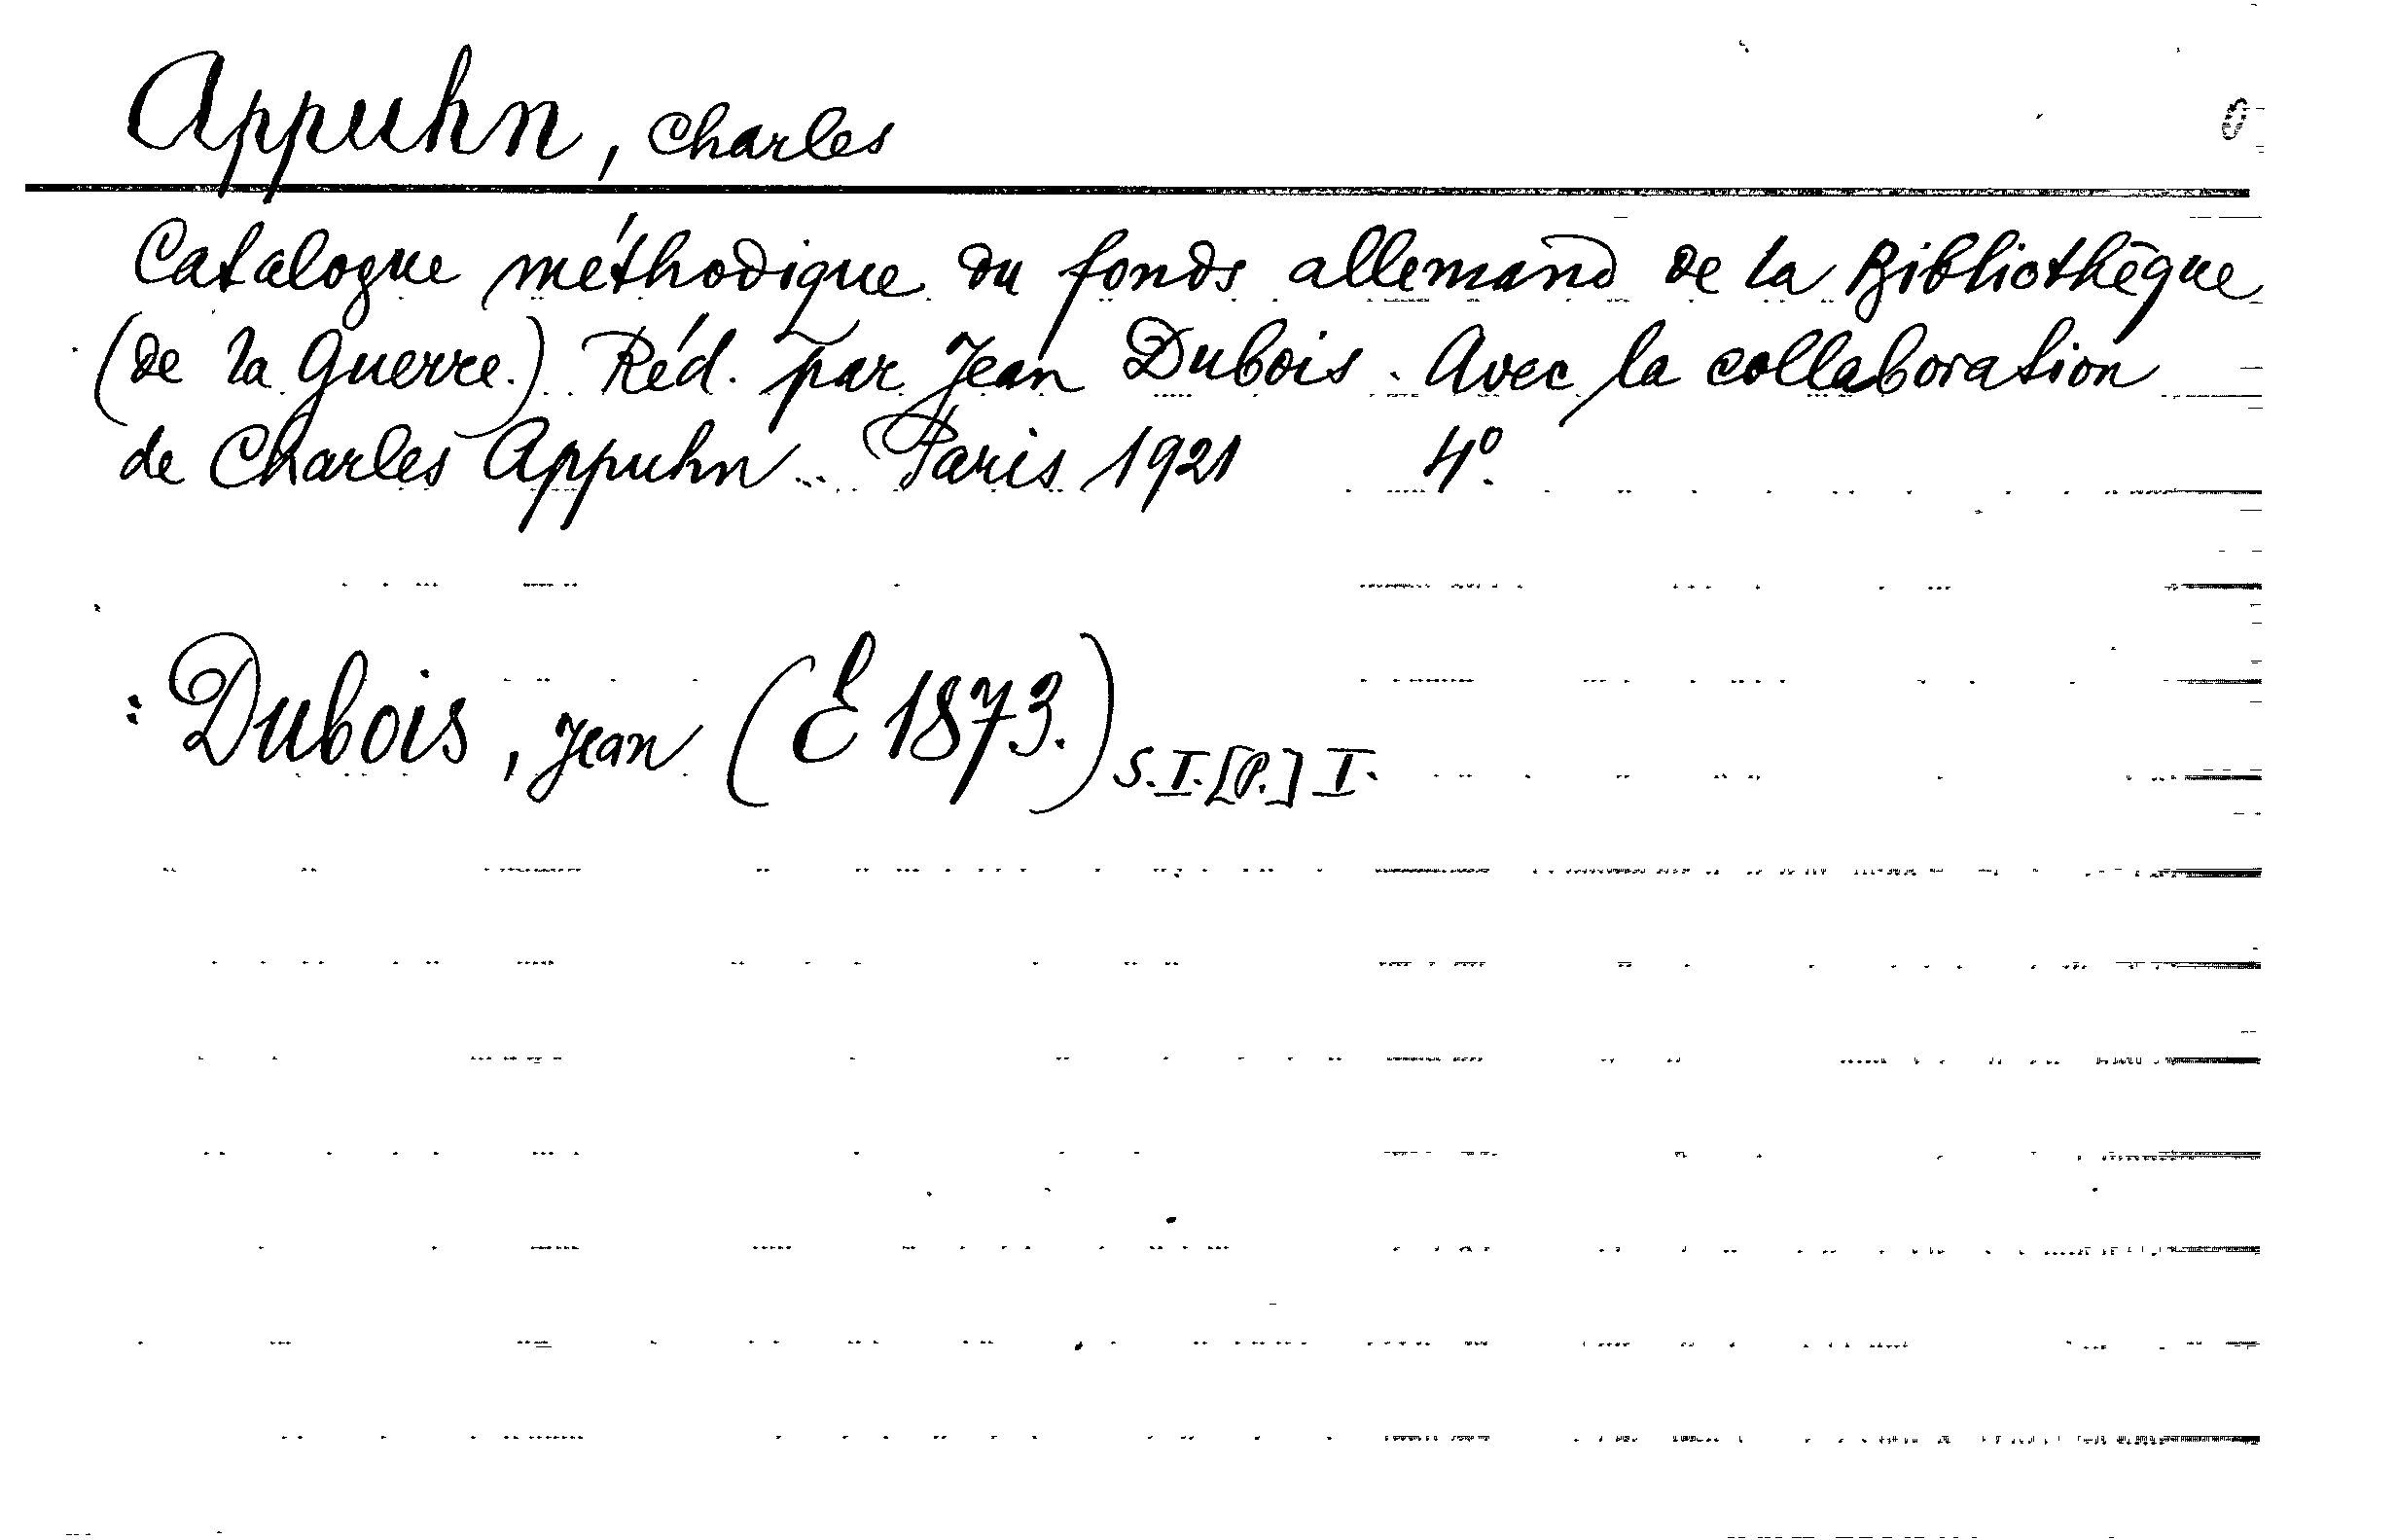 Appuhn, Charles
Catalogue méthodique du fonds allemand de la Bibliothèque
(de la Guerre.) Réd. par Jean Dubois. Avec la collaboration
de Charles Appuhn.. Paris 1921 4º.
: Dubois, Jean (E 1873.) S.I.[P.] I.